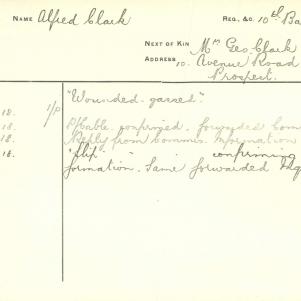 NAME Alfred Clark REG. &C. 10th Ba
NEXT OF KIN Mrs Geo. Clark
ADDRESS 10. Avenue Road
Prospect.
"Wounded-gassed."
18. P/Cable confirmed. forwarded Com
18. Reply from Commis. Information
18. "slip" confirming
formation. Same forwarded